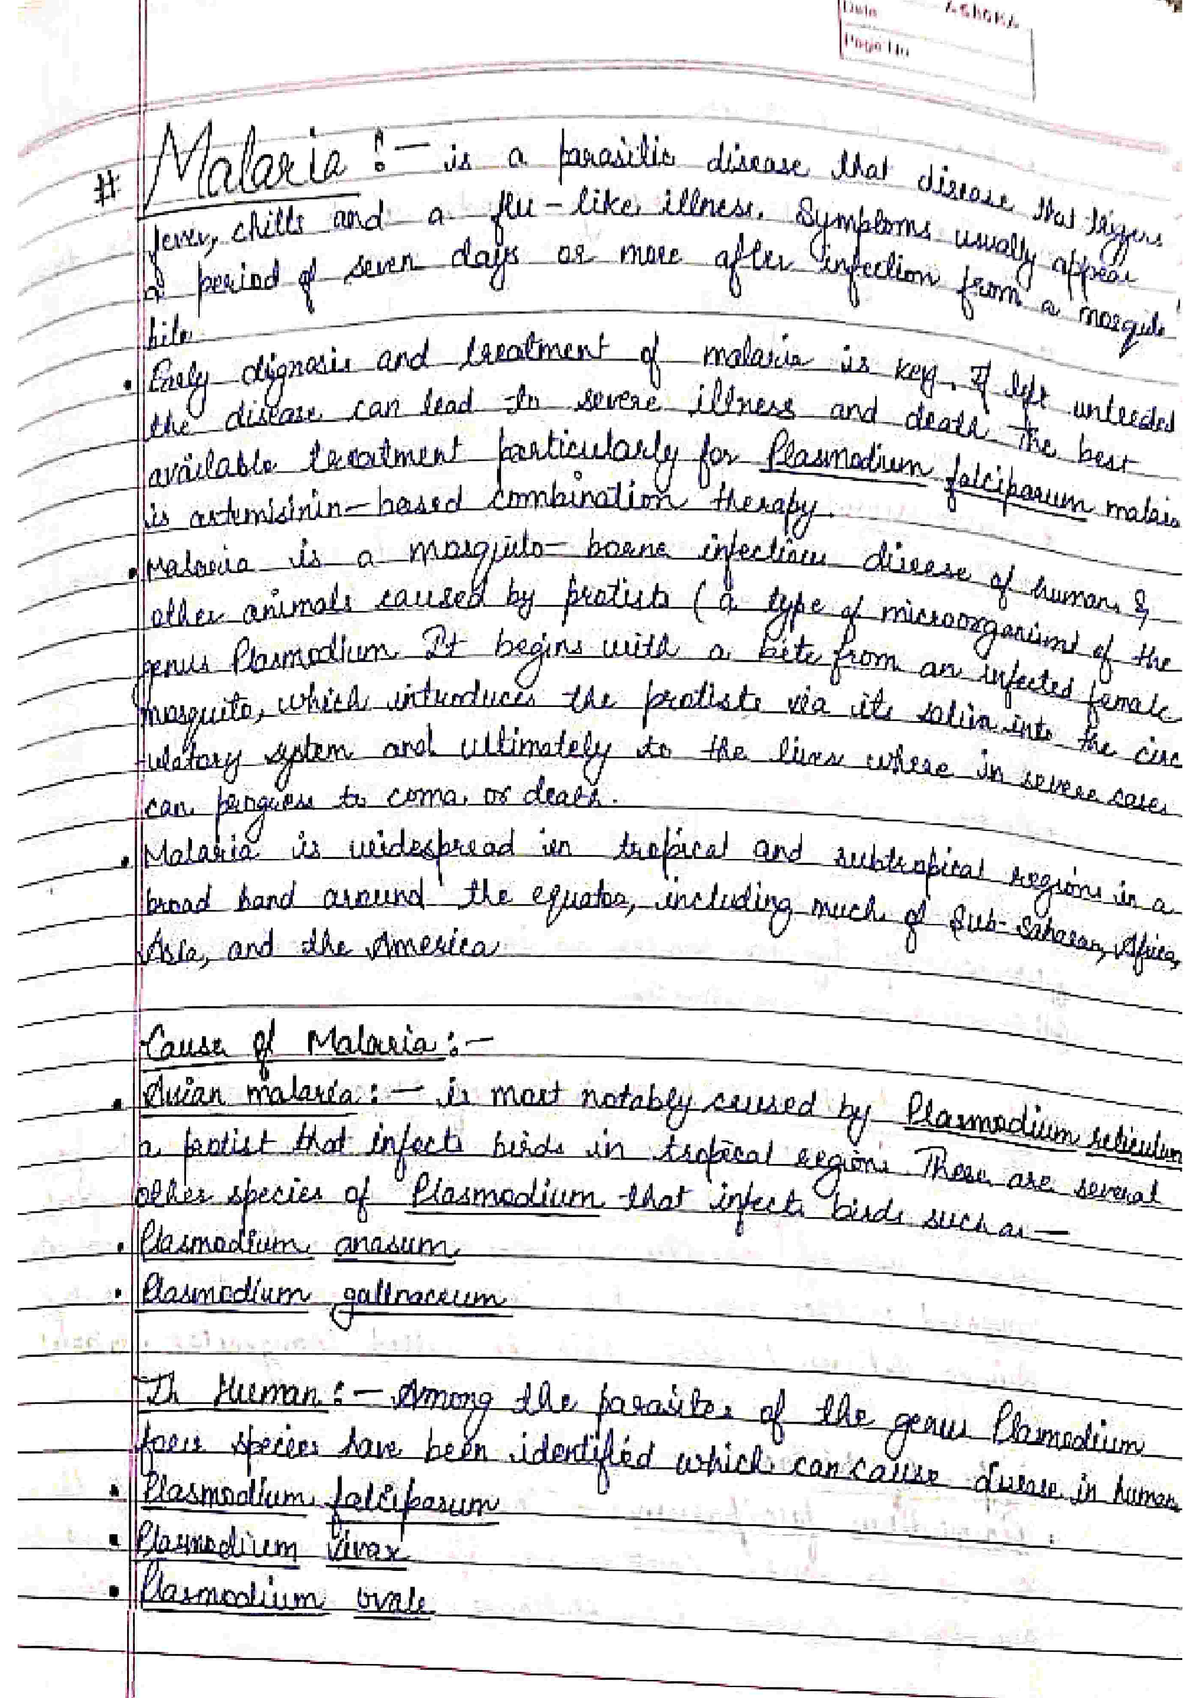 Date ASHOKA
Page No
# Malaria :- is a parasitic disease that disease that triggers
fever, chills and a flu-like illness. Symptoms usually appear
a period of seven days or more after infection from a mosquito
bite
• Early dignosis and treatment of malaria is key. If left unteeded
the disease can lead to severe illness and death The best
available treatment particularly for Plasmodium falciparum malaia
is artemisinin-based combination therapy.
• Malaria is a mosquito-borne infectious disease of humans &
other animals caused by protists (a type of microorganism) of the
genus Plasmodium It begins with a bite from an infected female
mosquito, which introduces the protists via its saliva into the circ
ulatory system and ultimately to the liver where in severe cases
can progress to coma or death.
• Malaria is widespread in tropical and subtropical regions in a
broad band around the equator, including much of Sub-Saharan, Africa,
Asia, and the America
Cause of Malaria :-
• Avian malaria :- is most notably caused by Plasmodium reticulum
a protist that infects birds in tropical regions These are several
other species of Plasmodium that infects birds such as -
• Plasmodium anasum
• Plasmodium gallnaceum
In Human :- Among the parasites of the genus Plasmodium
four species have been identified which can cause disease in human
• Plasmodium falciparum
• Plasmodium Vivax
• Plasmodium ovale